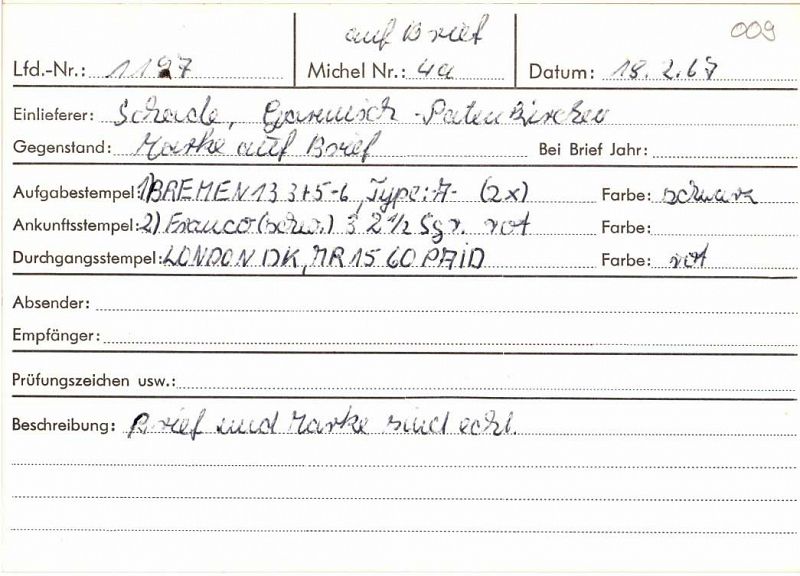 auf Brief
009
Lfd.-Nr.: 1197 Michel Nr.: 4a Datum: 18.2.67
Einlieferer: Schade, Garmisch-Patenkirchen
Gegenstand: Marke auf Brief Bei Brief Jahr:
Aufgabestempel: 1) BREMEN 13 3+5-6, Type: A- (2x) Farbe: schwarz
Ankunftsstempel: 2) Franco (schw.) 3 2 1/2 Sgr. rot Farbe:
Durchgangsstempel: LONDON DK, MR 15 60 PAID Farbe: rot
Absender:
Empfänger:
Prüfungszeichen usw.:
Beschreibung: Brief und Marke sind echt.